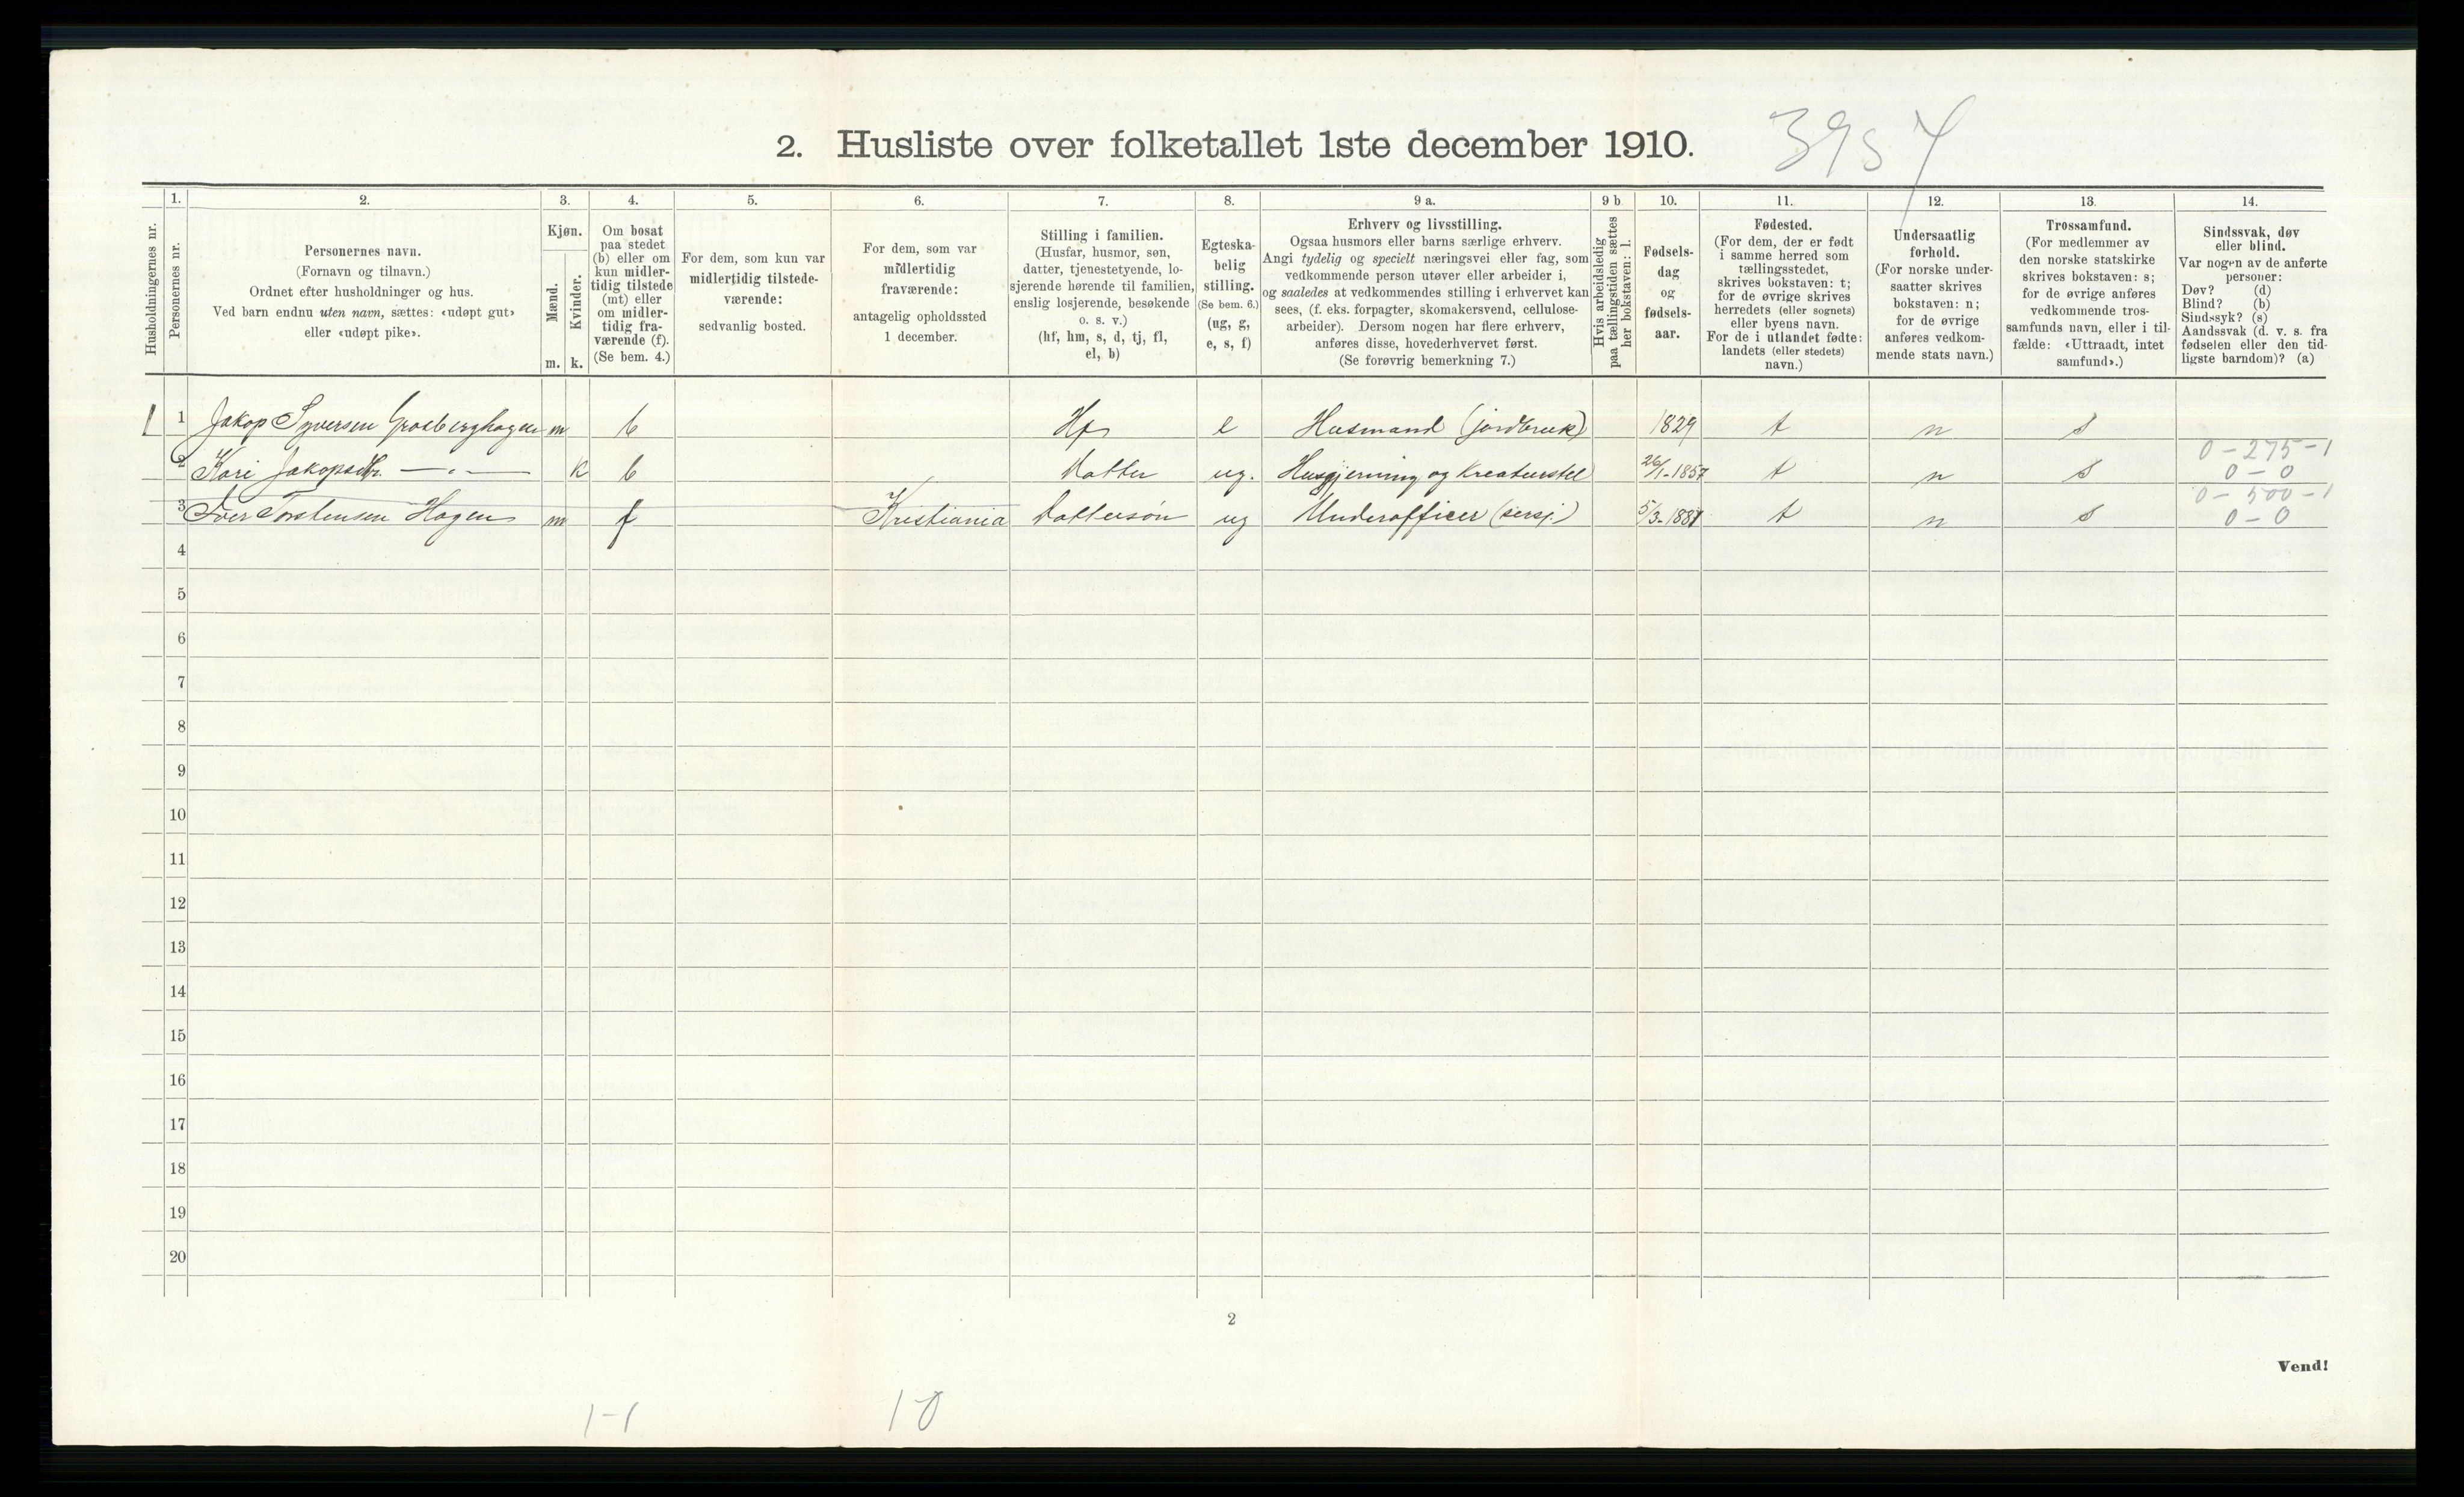 2. Husliste over folketallet 1ste december 1910.
3957
Husholdningernes nr.
1.
Personernes nr.
2.
Personernes navn.
(Fornavn og tilnavn.)
Ordnet efter husholdninger og hus.
Ved barn endnu uten navn, sættes: «udøpt gut»
eller «udøpt pike».
3.
Kjøn.
Mænd.
Kvinder.
m. k.
4.
Om bosat
paa stedet
(b) eller om
kun midler-
tidig tilstede
(mt) eller
om midler-
tidig fra-
værende (f).
(Se bem. 4.)
5.
For dem, som kun var
midlertidig tilstede-
værende:
sedvanlig bosted.
6.
For dem, som var
midlertidig
fraværende:
antagelig opholdssted
1 december.
7.
Stilling i familien.
(Husfar, husmor, søn,
datter, tjenestetyende, lo-
sjerende hørende til familien,
enslig losjerende, besøkende
o. s. v.)
(hf, hm, s, d, tj, fl,
el, b)
8.
Egteska-
belig
stilling.
(Se bem. 6.)
(ug, g,
e, s, f)
9 a.
Erhverv og livsstilling.
Ogsaa husmors eller barns særlige erhverv.
Angi tydelig og specielt næringsvei eller fag, som
vedkommende person utøver eller arbeider i,
og saaledes at vedkommendes stilling i erhvervet kan
sees, (f. eks. forpagter, skomakersvend, cellulose-
arbeider). Dersom nogen har flere erhverv,
anføres disse, hovederhvervet først.
(Se forøvrig bemerkning 7.)
9 b
Hvis arbeidsledig
paa tællingstiden sættes
her bokstaven: l.
10.
Fødsels-
dag
og
fødsels-
aar.
11.
Fødested.
(For dem, der er født
i samme herred som
tællingsstedet,
skrives bokstaven: t;
for de øvrige skrives
herredets (eller sognets)
eller byens navn.
For de i utlandet fødte:
landets (eller stedets)
navn.)
12.
Undersaatlig
forhold.
(For norske under-
saatter skrives
bokstaven: n;
for de øvrige
anføres vedkom-
mende stats navn.)
13.
Trossamfund.
(For medlemmer av
den norske statskirke
skrives bokstaven: s;
for de øvrige anføres
vedkommende tros-
samfunds navn, eller i til-
fælde: «Uttraadt, intet
samfund».)
14.
Sindssvak, døv
eller blind.
Var nogen av de anførte
personer:
Døv? (d)
Blind? (b)
Sindssyk? (s)
Aandssvak (d. v. s. fra
fødselen eller den tid-
ligste barndom)? (a)
1 1 Jakop Syversen m b Hf e Husmand (jordbruk) 1829 t n s
0-275-1
2 Kari Jakopsdtr. —"— k b Datter ug. Husgjerning og kreaturstel 26/1-1857 t n s 0-0
0-500-1
3 Iver Torstensen Hagen m f Kristiania Dattersøn ug Underofficer (sersj.) 5/3-1881 t n s 0-0
4
5
6
7
8
9
10
11
12
13
14
15
16
17
18
19
20
2
Vend!
1-1
10